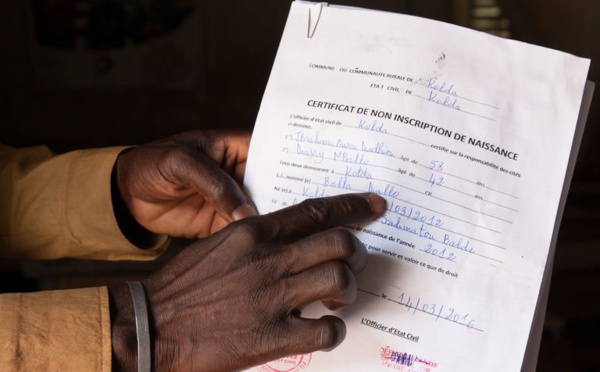 COMMUNE OU COMMUNAUTE RURALE DE Kolda
ETAT CIVIL DE Kolda
CERTIFICAT DE NON INSCRIPTION DE NAISSANCE
L'officier d'état civil de Kolda certifie sur la responsabilité des
ci-dessous,
1) Ibrahima âgé de 58 ans
2) âgé de 42 ans
Tous deux demeurant à Kolda
Diallo
Né(e) à Kolda /03/2012
ET DE Baldé
de naissance de l'année 2012
pour servir et valoir ce que de droit
14/03/2016
L'Officier d'Etat Civil